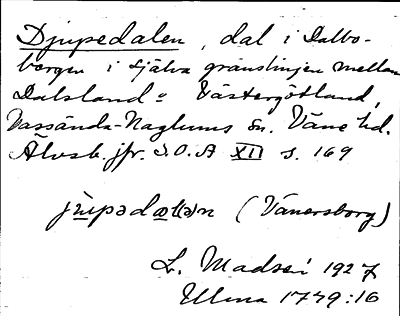 Djupedalen, dal i Dalbo-
bergen i själva gränslinjen mellan
Dalsland o Västergötland,
Vassända-Naglums sn. Väne hd.
Älvsb. jfr. S.O.Ä XII s. 169
(Vänersborg)
L. Madsén 1927
ULma 1749:16